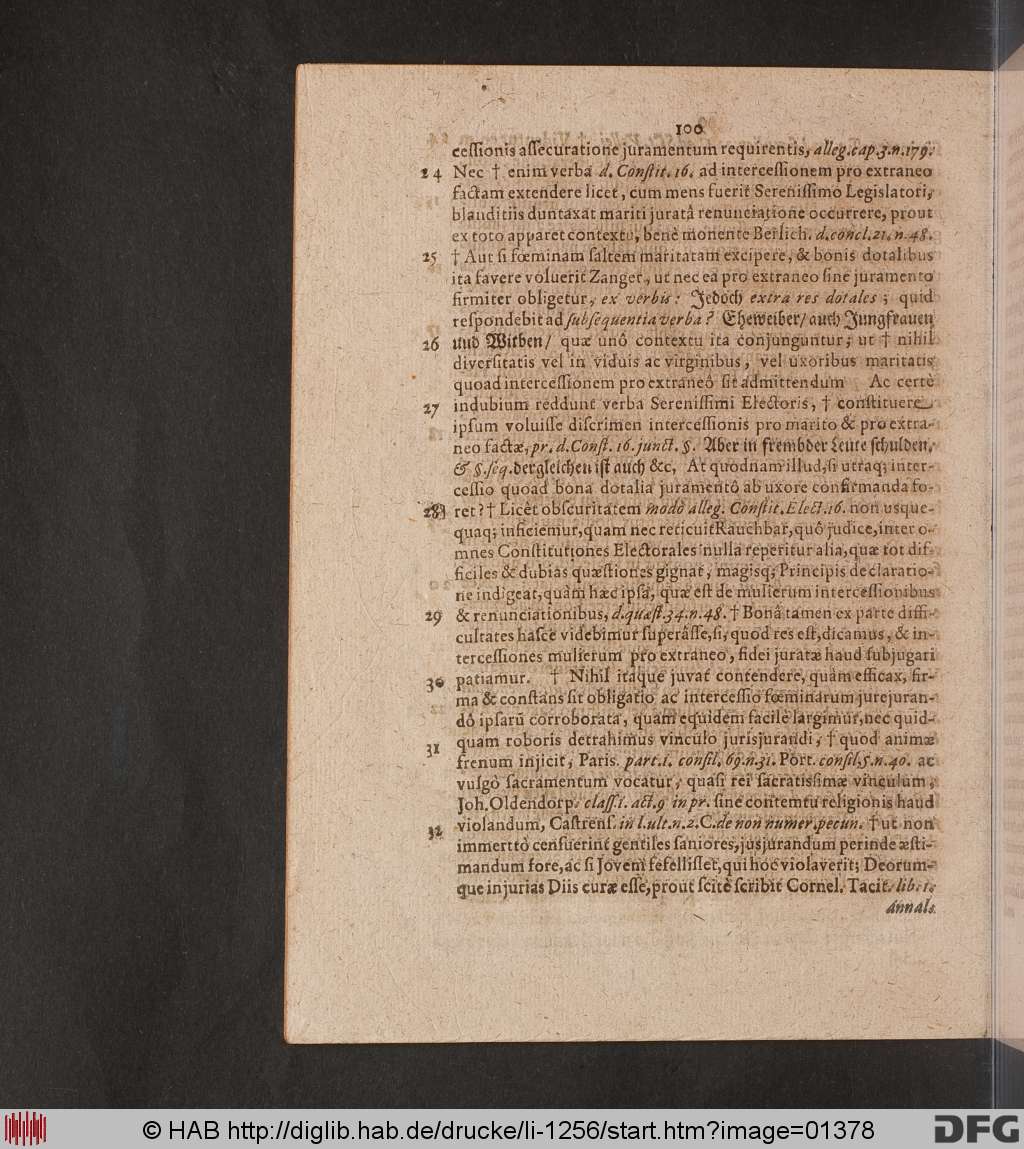 100
ceſſionis aſſecuratione juramentum requirentis, alleg. cap. 3. n. 179.
24 Nec † enim verba d. Conſtit. 16. ad interceſſionem pro extraneo
factam extendere licet, cum mens fuerit Sereniſſimo Legislatori,
blanditiis duntaxat mariti juratâ renunciatione occurrere, prout
ex toto apparet contextu, benè monente Berlich. d. concl. 21. n. 48.
25 † Aut ſi fœminam ſaltem maritatam excipere, & bonis dotalibus
ita favere voluerit Zanger., ut nec ea pro extraneo ſine juramento
firmiter obligetur, ex verbis: Jedoch extra res dotales; quid
reſpondebit ad ſubſequentia verba? Eheweiber/ auch Jungfrauen
26 und Witben/ quæ unô contextu ita conjunguntur, ut † nihil
diverſitatis vel in viduis ac virginibus, vel uxoribus maritatis
quoad interceſſionem pro extraneô ſit admittendum Ac certè
27 indubium reddunt verba Sereniſſimi Electoris, † conſtituere
ipſum voluiſſe diſcrimen interceſſionis pro marito & pro extra-
neo factæ, pr. d. Conſt. 16. junct. §. Aber in frembder Leute ſchulden,
& §. ſeq. dergleichen iſt auch &c. At quodnam illud, ſi utraq; inter-
ceſſio quoad bona dotalia juramentô ab uxore confirmanda fo-
28 ret? † Licèt obſcuritatem modò alleg. Conſtit. Elect. 16. non usque-
quaq; inficiemur, quam nec reticuit Rauchbar, quô judice, inter o-
mnes Conſtitutiones Electorales nulla reperitur alia, quæ tot dif-
ficiles & dubias quæſtiones gignat, magisq; Principis declaratio-
ne indigeat, quàm hæc ipſa, quæ eſt de mulierum interceſſionibus
29 & renunciationibus, d. quæſt. 34. n. 48. † Bonâ tamen ex parte diffi-
cultates haſce videbimur ſuperâſſe, ſi, quod res eſt, dicamus, & in-
terceſſiones mulierum pro extraneo, fidei juratæ haud ſubjugari
30 patiamur. † Nihil itaque juvat contendere, quàm efficax, fir-
ma & conſtans ſit obligatio ac interceſſio fœminarum jurejuran-
dô ipſarũ corroborata, quam equidem facilè largimur, nec quid-
quam roboris detrahimus vinculo jurisjurandi, † quod animæ
31 frenum injicit, Paris. part. 1. conſil. 69. n. 31. Port. conſil. 5. n. 40. ac
vulgò ſacramentum vocatur, quaſi rei ſacratissimæ vinculum,
Joh. Oldendorp. claſſ. 1. act. 9 in pr. ſine contemtu religionis haud
32 violandum, Caſtrenſ. in l. ult. n. 2. C. de non numer. pecun. † ut non
immerttò cenſuerint gentiles ſaniores, jusjurandum perinde æſti-
mandum fore, ac ſi Jovem fefelliſſet, qui hoc violaverit; Deorum-
que injurias Diis curæ eſſe, prout ſcitè ſcribit Cornel. Tacit. lib. 1.
Annals.
© HAB http://diglib.hab.de/drucke/li-1256/start.htm?image=01378
DFG